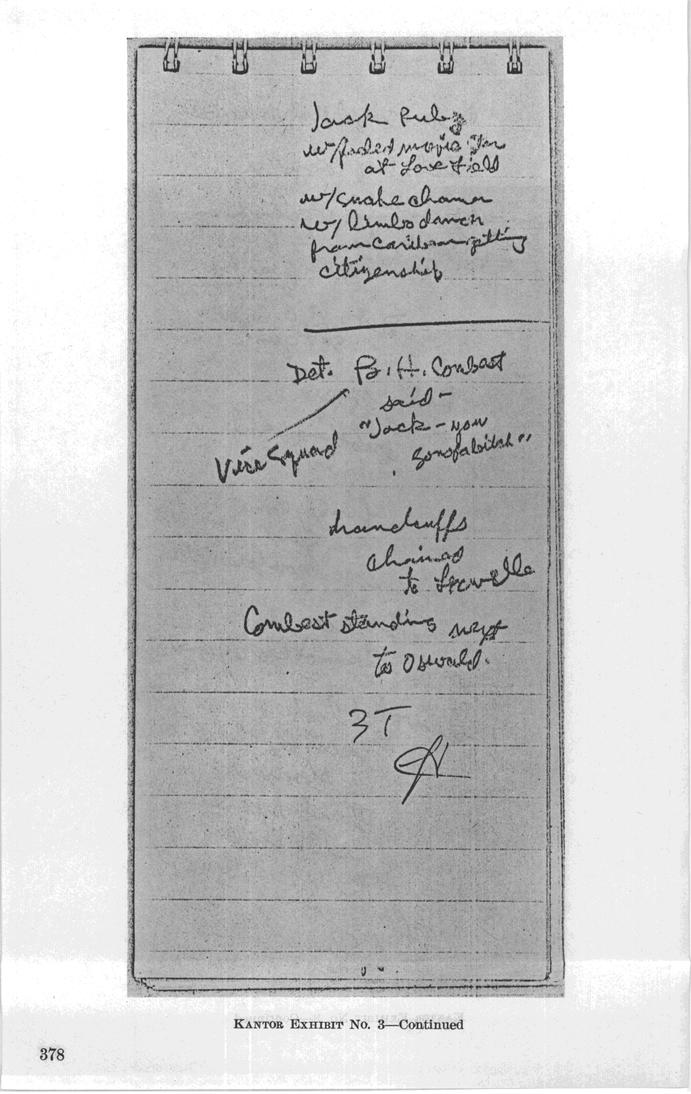 Jack Ruby
w/faded movie
at Love Field
w/snake charmer
w/ limbo dancer
from Caribbean getting
citizenship
Det. B. H. Combest
said -
"Jack - you
Vice Squad
sonofabitch"
handcuffs
chained
to Leavelle
Combest standing next
to Oswald.
3 T
KANTOR EXHIBIT No. 3—Continued
378